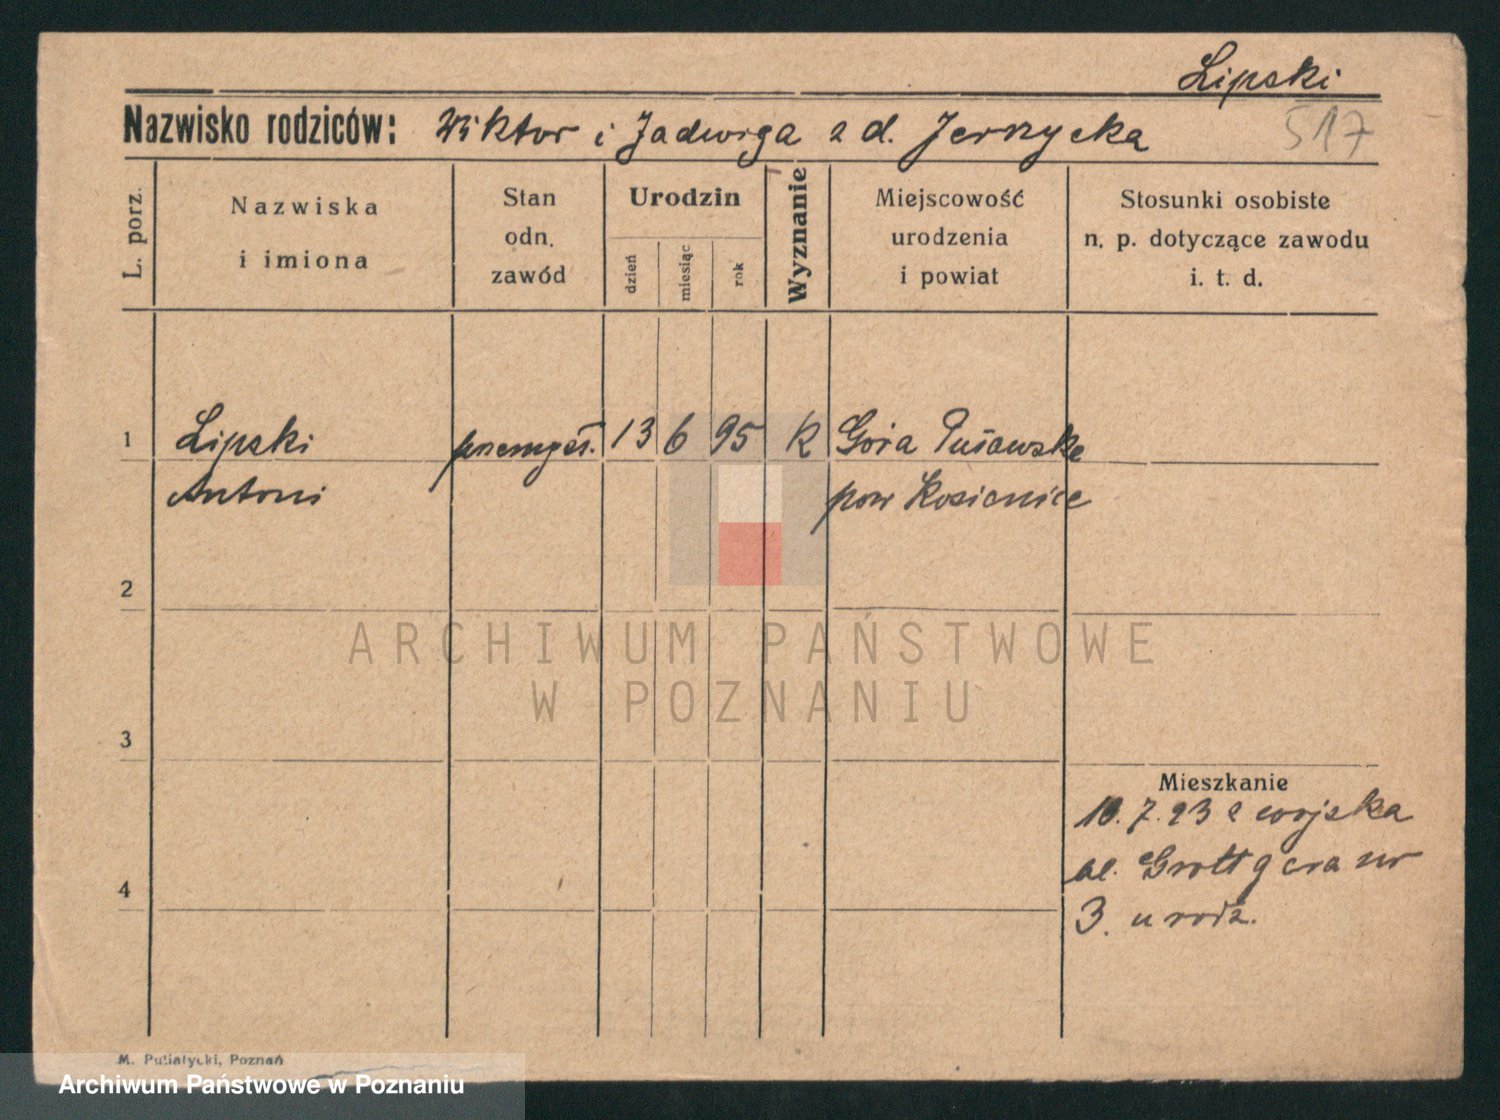 Lipski
Nazwisko rodziców: Wiktor i Jadwiga z d. Jerzycka
517
L. porz.
Nazwiska
i imiona
Stan
odn.
zawód
Urodzin
dzień
miesiąc
rok
Wyznanie
Miejscowość
urodzenia
i powiat
Stosunki osobiste
n. p. dotyczące zawodu
i. t. d.
1 Lipski przemysł. 13 6 95 K Góra Puławska
Antoni pow Kozienice
2
ARCHIWUM PAŃSTWOWE
W POZNANIU
3
Mieszkanie
18.7.23 z wojska
al. Grottgera nr
4
3. u rodz.
M. Putiatycki, Poznań
Archiwum Państwowe w Poznaniu